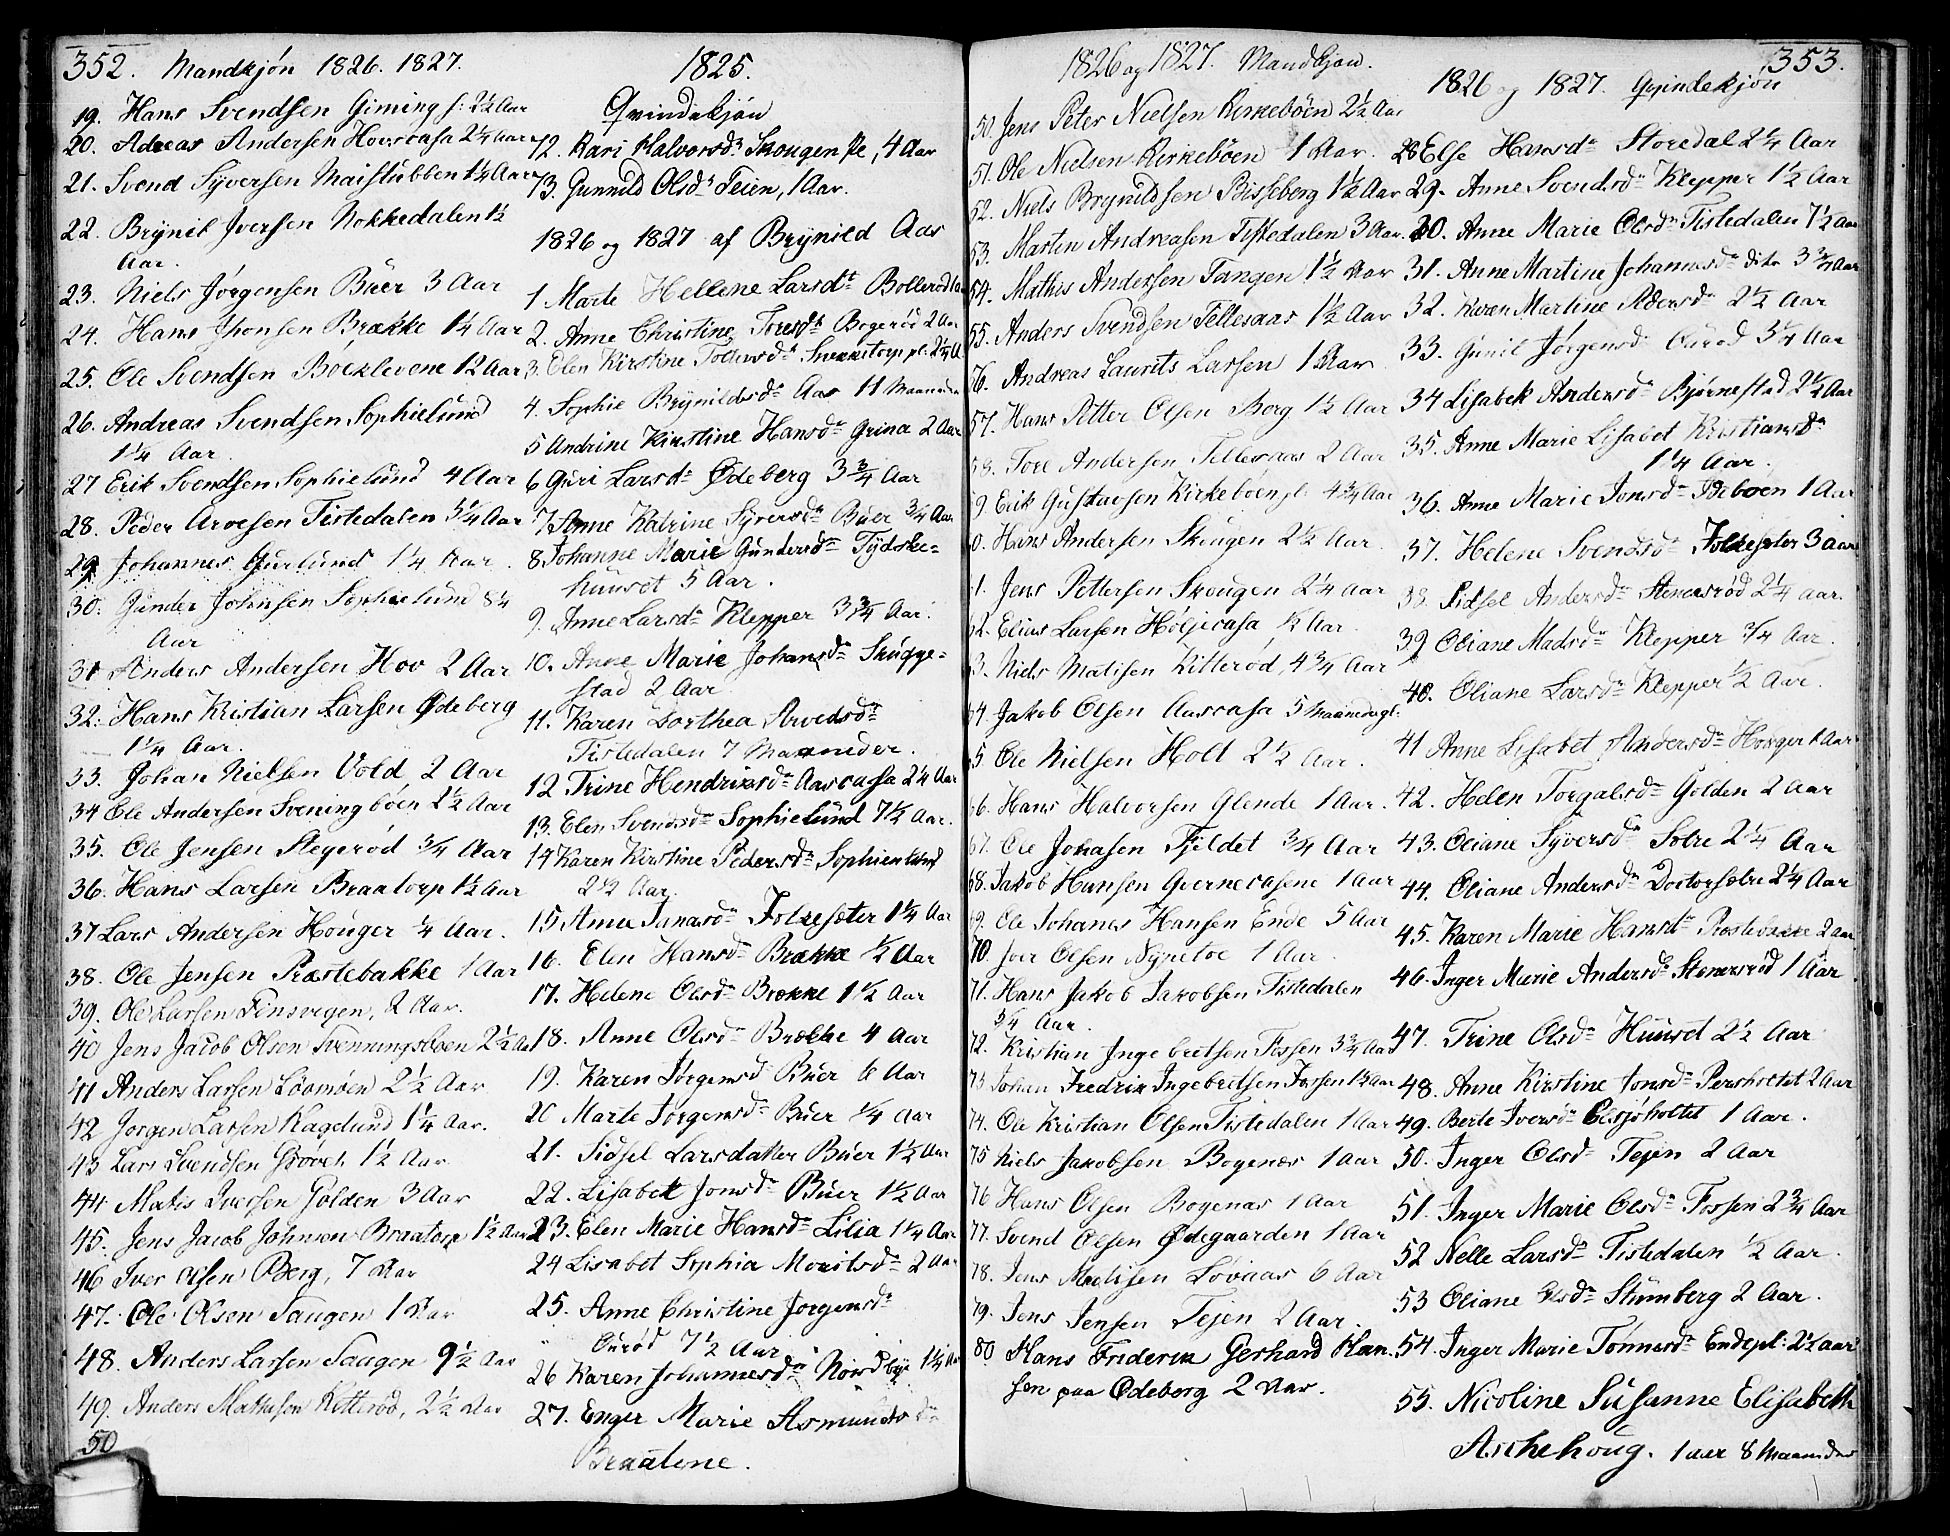 352. Mandkjøn 1826. 1827.
19. Hans Svendsen Giming 2½ Aar
20. Adreas Andersen Hovscasa 2¼ Aar
21. Svend Syversen Maistubben 1¼ Aar
22. Brynil Iversen Nokkedalen 1½
Aar.
23. Niels Jørgensen Buer 3 Aar
24. Hans Jhonsen Brække 1¼ Aar
25. Ole Svendsen Boeklevene 12 Aar
26. Andreas Svendsen Sophielund
1¼ Aar.
27 Erik Svendsen Sophielund 4 Aar
28. Peder Arvesen Tistedalen 5¼ Aar
29 Johannes 1¼ Aar.
30. Gunder Johnsen Sophielund 8¼
Aar
31 Anders Andersen Hov 2 Aar
32. Hans Kristian Larsen Ødeberg
1¼ Aar.
33. Johan Nielsen Vold, 2 Aar
34 Ole Andersen Sveningbøen 2½ Aar
35. Ole Jensen Stegerød ¾ Aar
36. Hans Larsen Braatorp 1½ Aar
37 Lars Andersen Houger ¼ Aar.
38. Ole Jensen Præstebakke 1 Aar
39. Ole Larsen 2 Aar.
40 Jens Jacob Olsen Svenningsbøen 2½ Aar
41 Anders Larsen Løvmoen 2½ Aar
42 Jørgen Larsen Kagelund 1¼ Aar.
43 Lars Svendsen 1½ Aar
44 Matis Iversen Golden 3 Aar
45. Jens Jacob Johnsen Braatorp 1½ Aar
46 Iver Olsen Berg, 7 Aar
47. Ole Olsen Saugen 1 Aar
48. Anders Larsen Saugen 9½ Aar
49. Anders Mathisen Kitterød, 2½ Aar
50
1825.
Qvindekjøn
12. Kari Halvorsdr Skougen Pe, 4 Aar
13. Gunnild Olsdr Teien, 1 Aar.
1826 og 1827 af Brynild Aas
1 Marte Hellene Larsdt Bollerød
2. Anne Christine Toresdr Bogerød 2 Aar
3. Elen Kirstine Tollevsdr 2¼ A
4. Sophie Brynildsdr Aas 11 Maaneder
5 Andrine Kirstine Hansdr Grina 2 Aar
6 Guri Larsdr Ødeberg 3¾ Aar
7 Anne Katrine Syversdr Buer ¾ Aar
8 Johanne Marie Gundersdr Tydske-
huuset 5 Aar.
9. Anne Larsdr Klepper 3¾ Aar.
10. Anne Marie Johansdr Skugge-
stad 2 Aar
11. Karen Dorthea Arvedsdr
Tistedalen 7 Maaneder.
12 Trine Hendrixsdr Aascasa 2¼ Aar
13. Elen Svendsdr Sophielund 7½ Aar.
14 Karen Kirstine Pedersdr Sophienlund
2½ Aar.
15 Anne Folkesæter 1¼ Aar
16. Elen Hansdr Brække ½ Aar
17. Helene Olsdr Brække 1½ Aar
18. Anne Olsdr Brække 4 Aar
19. Karen Jørgensd Buer 6 Aar
20 Marte Jørgensdr Buer ¼ Aar
21. Sidsel Larsdatter Buer 1½ Aar
22. Lisabet Jonsdr Buer 1½ Aar
23. Elen Marie Hansdr Lilia 1¼ Aar
24 Lisabet Sophia Moritsdr 2 Aar
25. Anne Christine Jørgensdr
Ourød 7½ Aar
26 Karen Johannesdr Nordbye 1¼ Aar
27. Enger Marie Asmundsdr
Braatene.
1826 og 1827. Mandkjøn.
50. Jens Peter Nielsen Kirkebøen 2½ Aar
51. Ole Nielsen Kirkebøen 1 Aar.
52. Niels Brynildsen Bisseberg 1½ Aar
53. Marten Andreasen Tistedalen 3 Aar.
54. Mathis Andersen Tangen 1½ Aar
55. Anders Svendsen Tellesaas 1½ Aar
56. Andreas Laurits Larsen 1 Aar
57. Hans Petter Olsen Berg 1½ Aar
58. Tore Andersen Tellesaas 2 Aar
59. Erik Gustavsen Kirkeboen pl 4¾ Aar
60. Hans Andersen Skougen 2½ Aar
61. Jens Pettersen Skougen 2¼ Aar
62. Elius Larsen Høljecasa ½ Aar
63. Niels Matisen Kitterød, 4¾ Aar
64. Jakob Olsen Aascasa 5 Maaneder gl.
65 Ole Nielsen Holt 2½ Aar.
66. Hans Halvorsen Glende 1 Aar.
67. Ole Johasen Fjeldet ¾ Aar
68. Jakob Hansen Qvernecasene 1 Aar
69. Ole Johanes Hansen Ende 5 Aar
70. Iver Olsen 1 Aar.
71. Hans Jakob Jakobsen Tistedalen
¾ Aar.
72. Kristian Ingebretsen Fossen 3¾ Aar
73 Johan Fredrik Ingebretsen Fossen 1½ Aar
74. Ole Kristian Olsen Tistedalen 1 Aar
75 Niels Jakobsen Bogenæs 1 Aar
76 Hans Olsen Bogenæs 1 Aar
77. Svend Olsen Ødegaarden 1 Aar
78. Jens Madisen Løvaas 6 Aar
79. Jens Jensen Tejen 2 Aar.
80 Hans Friderik Gerhard Han-
sen paa Ødeberg 2 Aar.
353.
1826 og 1827. Qvindekjøn
28 Else Hansdr Storedal 2¼ Aar
29. Anne Svendsdr Klepper 1½ Aar
30. Anne Marie Olsdr Tistedalen 7½ Aar
31. Anne Martine Johannesdr dito 3¾ Aar
32. Karen Martine Pedersdr 2½ Aar
33. Gunil Jørgensdr Ourød 3¼ Aar
34 Lisabeth Andersdr Bjørnestad 2½ Aar
35. Anne Marie Lisabet Kristiansdr
1¼ Aar.
36. Anne Marie Jonsdr 1 Aar
37. Helene Svendsdr Folkesæter 3 aar
38. Sidsel Andersdr Stenersrød 2¼ Aar.
39 Oliane Madsdr Klepper ¾ Aar.
40. Oliane Larsdr Klepper ½ Aar.
41 Anne Lisabet Andersdr Houger 1 Aar
42. Helen Torgalsdr Golden 2 Aar
43. Oliane Syversdr Solre 2¼ Aar
44. Oliane Andersdr 2¼ Aar
45. Karen Marie Hansdr Præstebakke 2 aar
46. Inger Marie Andersdr Stenersrød 1 Aar
47. Trine Olsdr Huuset 2½ Aar
48. Anne Kirstine Jonsdr Persholtet 2 Aar
49. Berte Iversdr 1 Aar.
50. Inger Olsdr Tejen 2 Aar
51. Inger Marie Olsdr Fossen 2¾ Aar
52 Nelle Larsdr Tistedalen ½ Aar.
53 Oliane Olsdr Stumberg 2 Aar.
54. Inger Marie Tønnesdr Ende pl: 2½ aar
55. Nicoline Susanne Elisabeth
Aschehoug. 1 aar 8 Maaneder